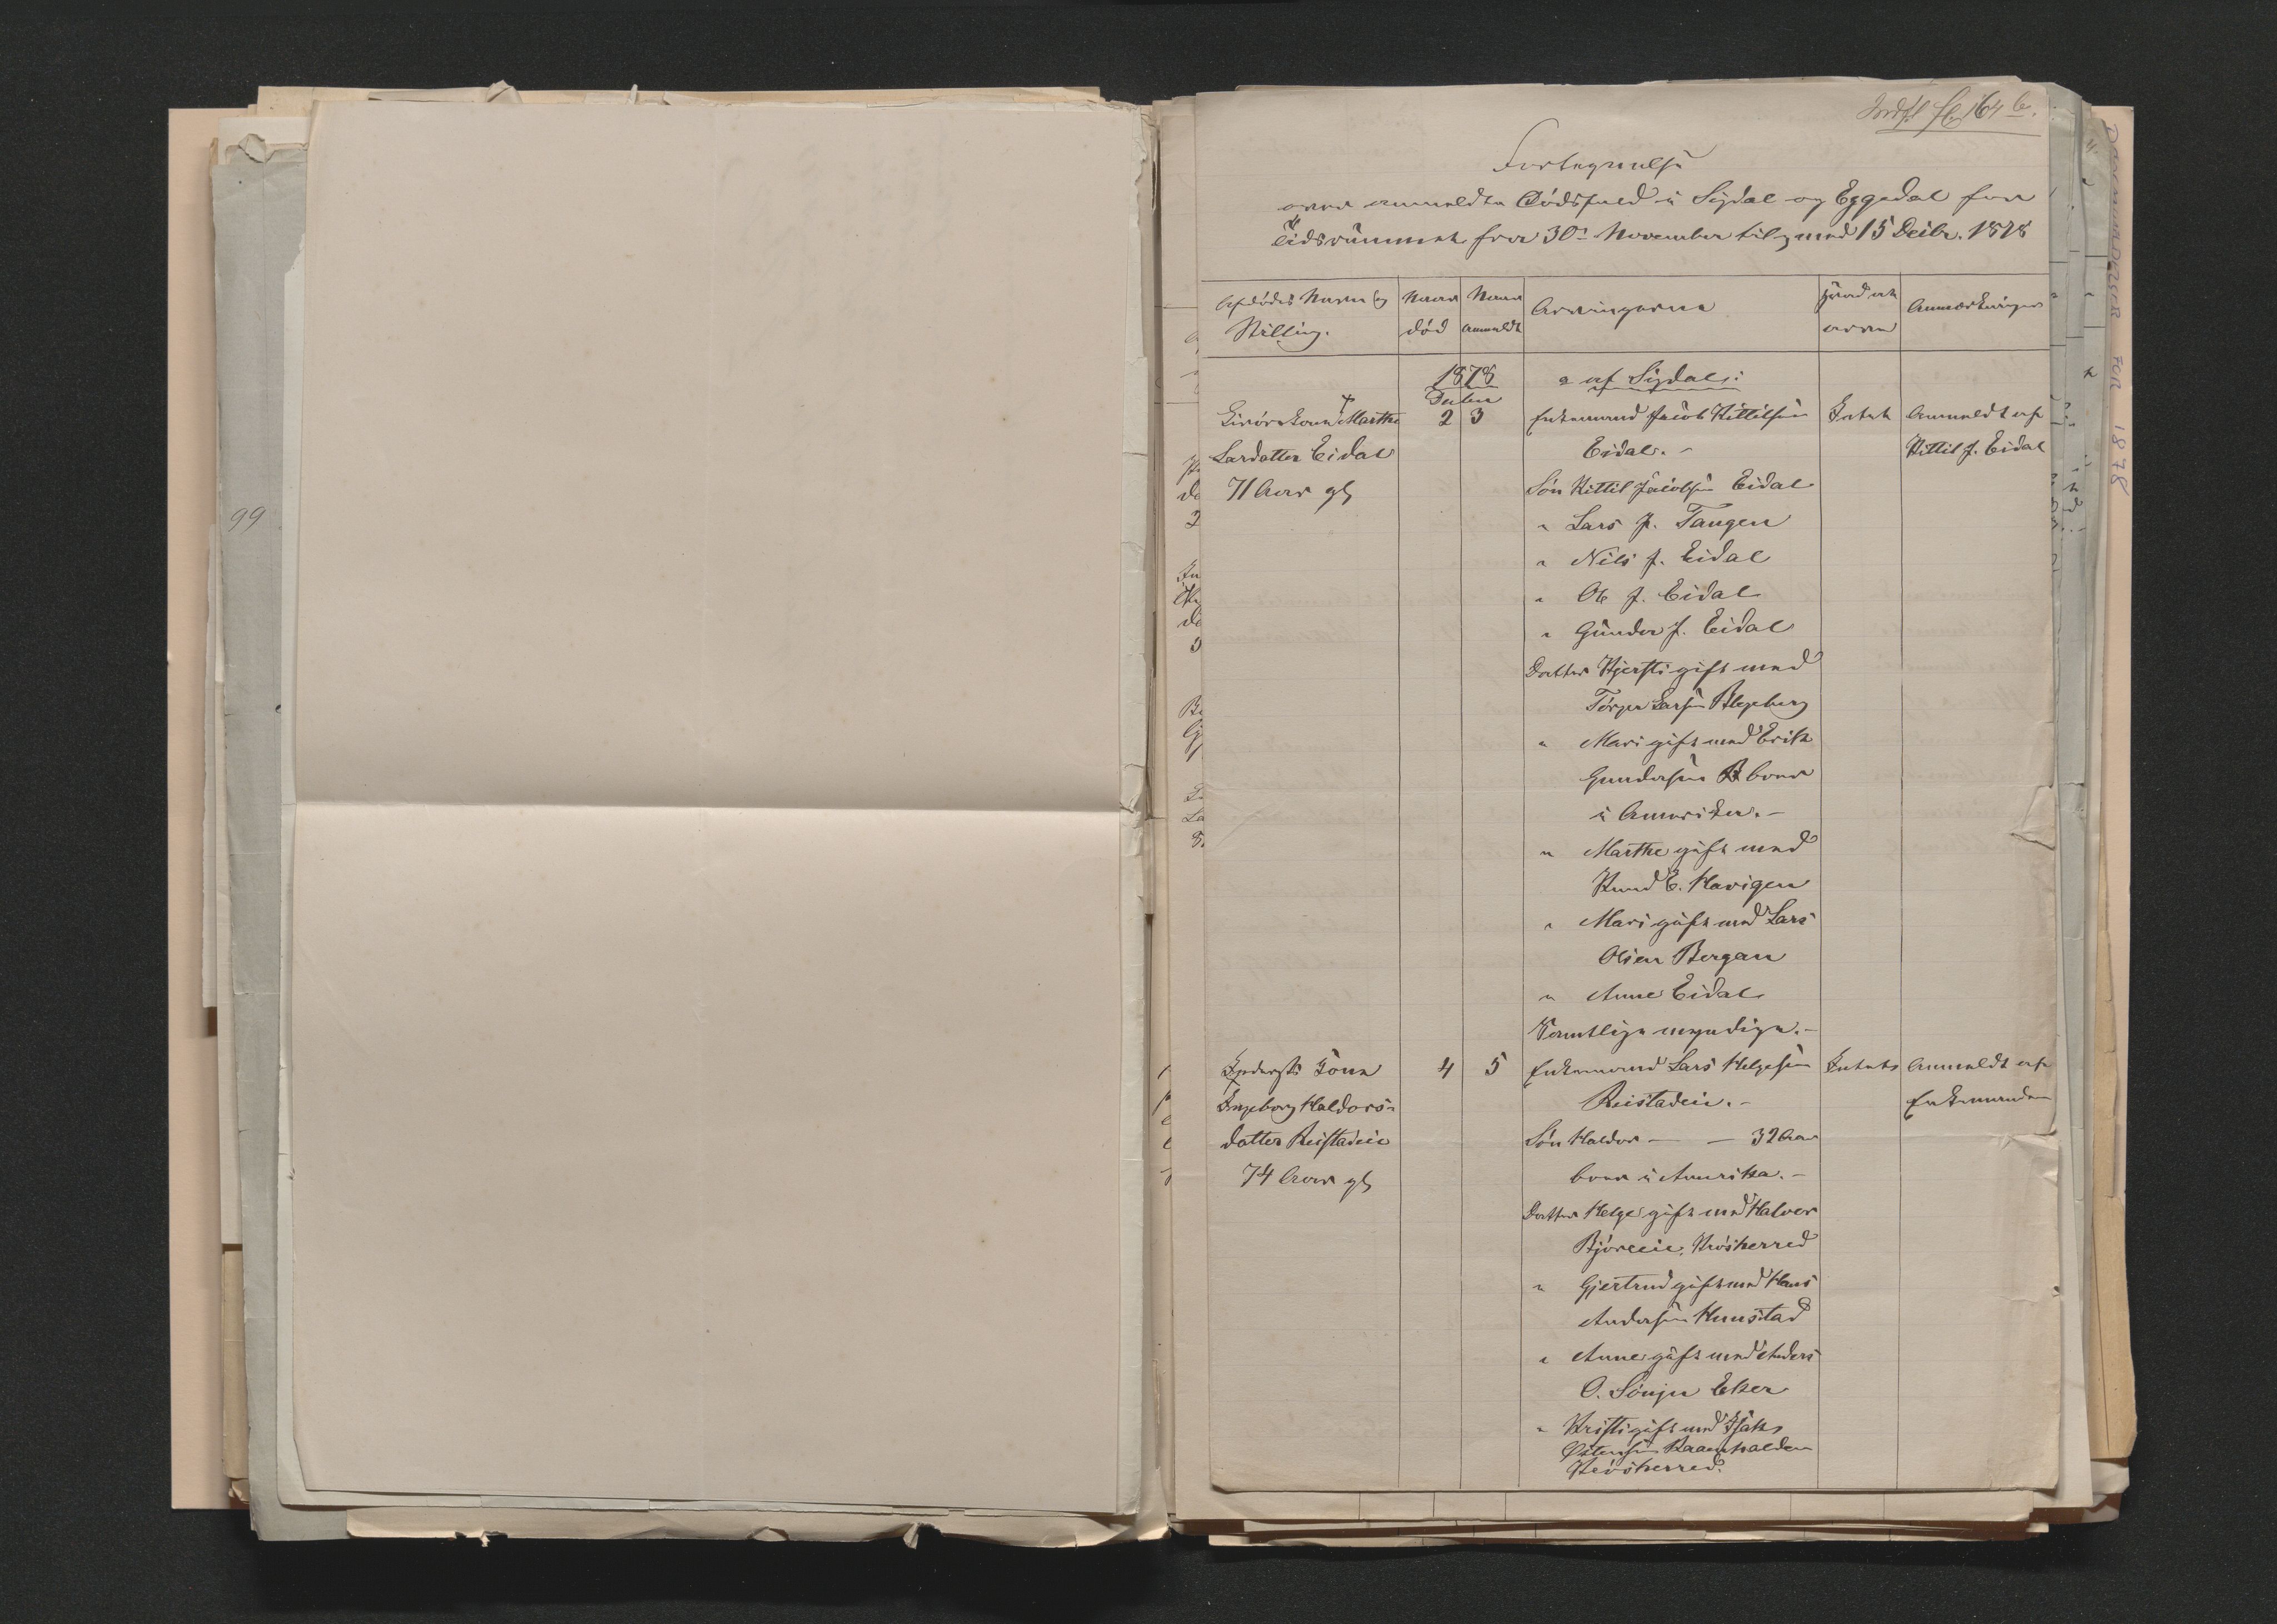 99
Indf. fl. 164 b.
Fortegnelse
over anmeldte Dødsfald i Sigdal og Eggedal for
Tidsrummet fra 30te November til og med 15 Decbr. 1878
Afdødes Navn og Stilling.
Naar død
Naar anmeldt
Arvingerne
Anmærkninger
1878
a af Sigdal:
Decbr
Marthe 2 3 Enkemand Jacob Kittilsen Intet Anmeldt af
Larsdatter Eidal Eidal. - Kittil J. Eidal
71 Aar gl Søn Kittil Jacobsen Eidal
" Lars J. Tangen
" Nils J. Eidal
" Ole J. Eidal
" Gunder J. Eidal
Datter Kjersti gift med
Torger Larsen
" Mari gift med Erik
Gundersen boer
i Amerika. -
" Marthe gift med
Knud E. Havigen
" Mari gift med Lars
Olsen Bergan
" Anne Eidal
Samtlige myndige. -
Inderst Kone 4 5 Enkemand Lars Helgesen Intet Anmeldt af
Ingeborg Haldors- Reistadeie. - Enkemanden
datter Reistadeie Søn Haldor — — 32 Aar
74 Aar gl boer i Amerika. -
Datter Helge gift med Halvor
Bjøreeie, Krøsherred
" Gjertrud gift med Hans
Andersen Hunstad
" Anne gift med Anders
O. Sønju Eker
" Kristi gift med Isak
Østensen
Krøsherred.
DØDSANMELDELSER FOR 1878